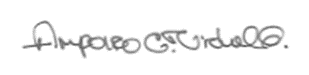 Amparo G. Vidal G.